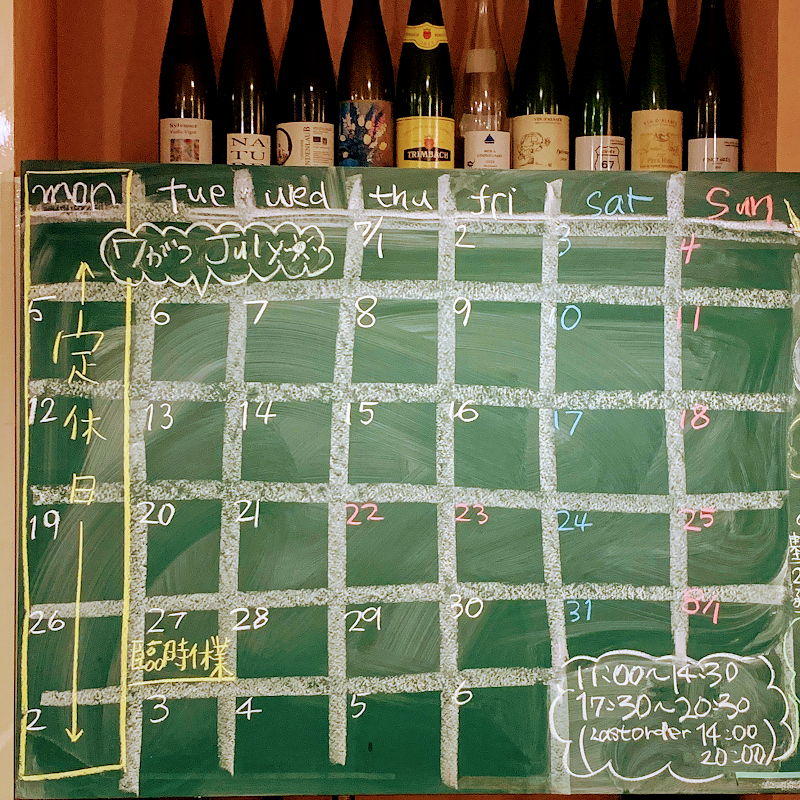 Sylvaner
NATU
TRIMBACH
VIN D'ALSACE
67
mon tue wed thu fri sat sun
7がつ July
7/1 2 3 4
5 6 7 8 9 10 11
12 13 14 15 16 17 18
19 20 21 22 23 24 25
26 27 28 29 30 31 8/1
2 3 4 5 6
定休日
臨時休業
11:00~14:30
17:30~20:30
(Lastorder 14:00
20:00)